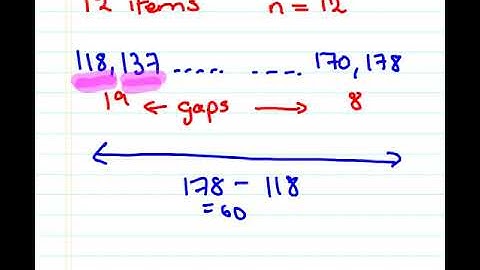 12 items n = 12
118, 137 ..... ---.. 170, 178
19 ← gaps → 8
178 - 118
= 60